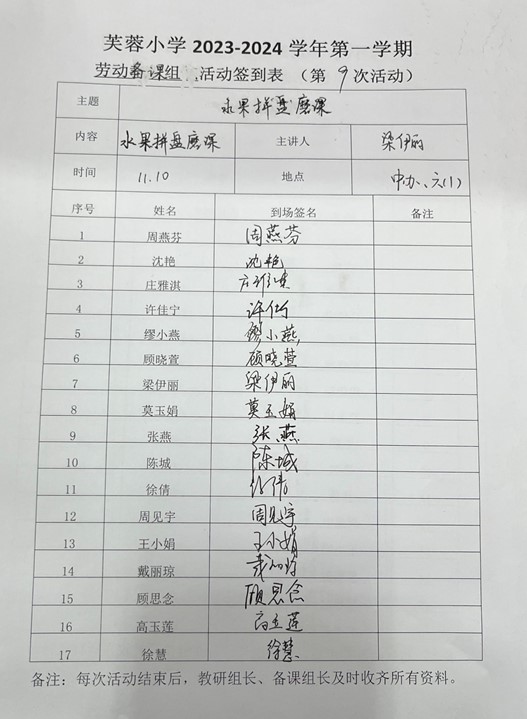 芙蓉小学 2023-2024 学年第一学期
劳动备课组 活动签到表（第 9 次活动）
主题 水果拼盘磨课
内容 水果拼盘磨课 主讲人 梁伊丽
时间 11.10 地点 中办、六(1)
序号 姓名 到场签名 备注
1 周燕芬 周燕芬
2 沈艳 沈艳
3 庄雅淇 庄雅淇
4 许佳宁 许佳宁
5 缪小燕 缪小燕
6 顾晓萱 顾晓萱
7 梁伊丽 梁伊丽
8 莫玉娟 莫玉娟
9 张燕 张燕
10 陈城 陈城
11 徐倩 徐倩
12 周见宇 周见宇
13 王小娟 王小娟
14 戴丽琼 戴丽琼
15 顾思念 顾思念
16 高玉莲 高玉莲
17 徐慧 徐慧
备注：每次活动结束后，教研组长、备课组长及时收齐所有资料。